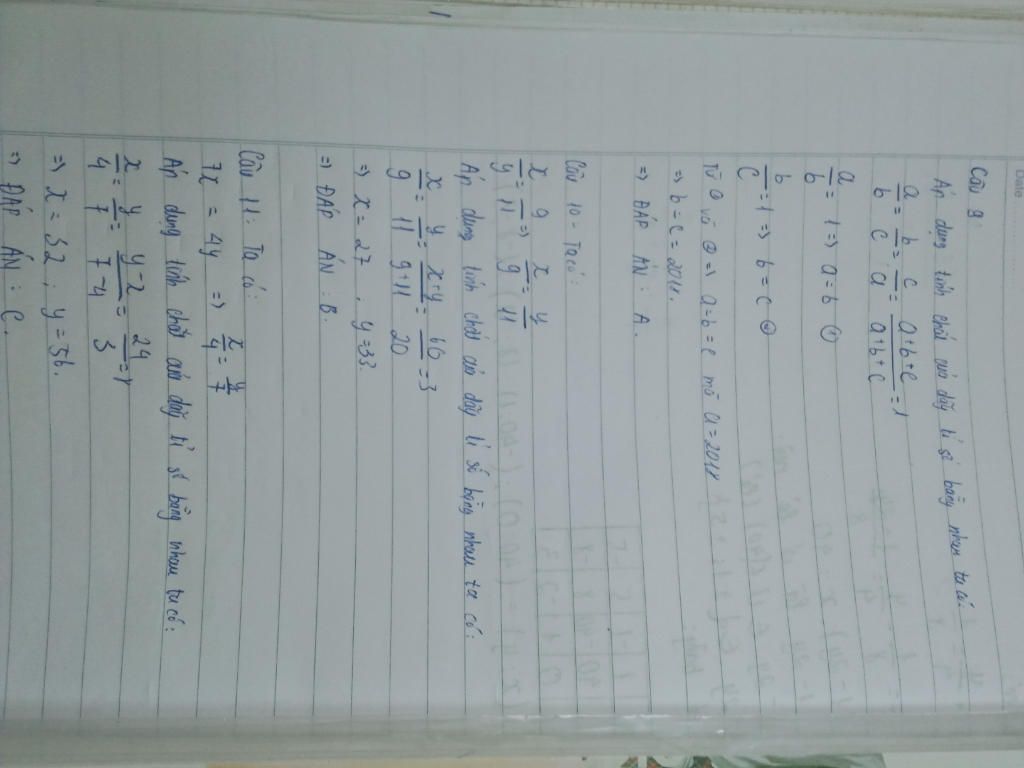 Date
Câu 9:
Áp dụng tính chất của dãy tỉ số bằng nhau ta có:
a/b = b/c = c/a = a+b+c/a+b+c = 1
a/b = 1 => a = b ①
b/c = 1 => b = c ②
Từ ① và ② => a = b = c mà a = 2018
=> b = c = 2018.
=> ĐÁP ÁN: A.
Câu 10 = Ta có:
x/y = 9/11 => x/9 = y/11
Áp dụng tính chất của dãy tỉ số bằng nhau ta có:
x/9 = y/11 = x+y/9+11 = 60/20 = 3
=> x = 27, y = 33.
=> ĐÁP ÁN: B.
Câu 11: Ta có:
7x = 4y => x/4 = y/7
Áp dụng tính chất của dãy tỉ số bằng nhau ta có:
x/4 = y/7 = y-x/7-4 = 24/3 = 8
=> x = 32; y = 56.
=> ĐÁP ÁN: C.